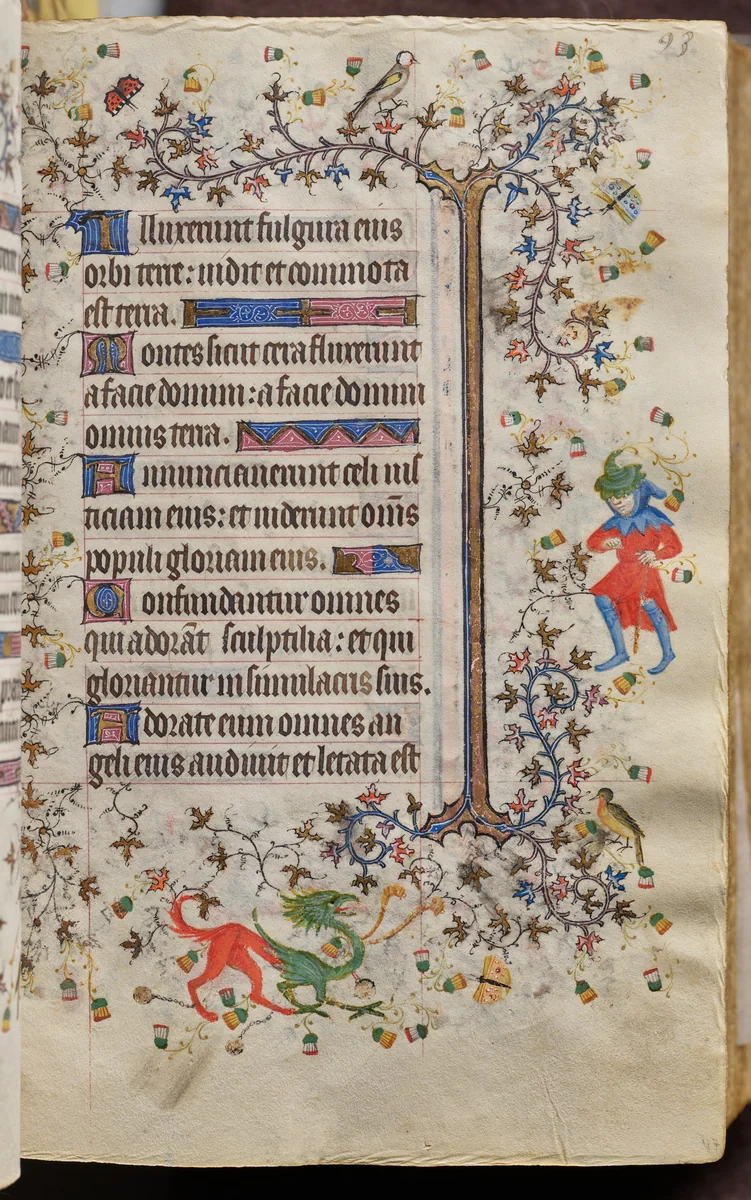 98
Illuxerunt fulgura eius
orbi terre: uidit et commota
est terra.
Montes sicut cera fluxerunt
a facie domini: a facie domini
omnis terra.
Annunciauerunt celi iusti
ticiam eius: et uiderunt om̅s
populi gloriam eius.
Confundantur omnes
qui adora̅t sculptilia: et qui
gloriantur in simulacris suis.
Adorate eum omnes an
geli eius audiuit et letata est